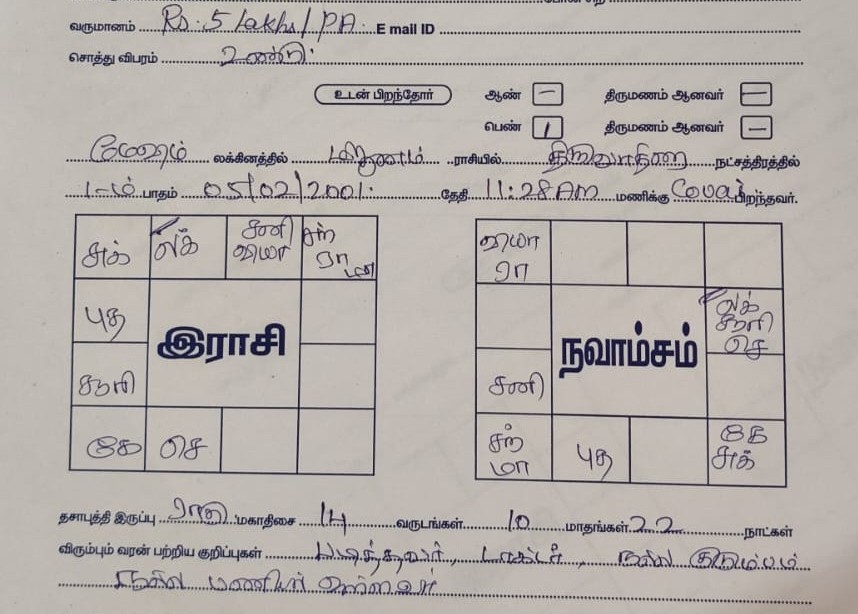 வருமானம் Rs. 5 lakhs / PA. E mail ID
சொத்து விபரம் உண்டு.
உடன் பிறந்தோர் ஆண் – திருமணம் ஆனவர் –
பெண் 1 திருமணம் ஆனவர் –
மேஷம் லக்கினத்தில் மிதுனம் ராசியில் திருவாதிரை நட்சத்திரத்தில்
1-ம் பாதம் 05/02/2001. தேதி 11:28 AM மணிக்கு கோவை பிறந்தவர்.
சுக் லக் சனி வியா சந் ரா மா
வியா ரா
புத இராசி
நவாம்சம் லக் சூரி செ
சூரி
சனி
கே செ
சந் மா புத கே சுக்
தசாபுத்தி இருப்பு ராகு மகாதிசை 14 வருடங்கள் 10 மாதங்கள் 22 நாட்கள்
விரும்பும் வரன் பற்றிய குறிப்புகள் படித்தவர், டாக்டர், நல்ல குடும்பம்
நல்ல பணியில் உள்ளவர்